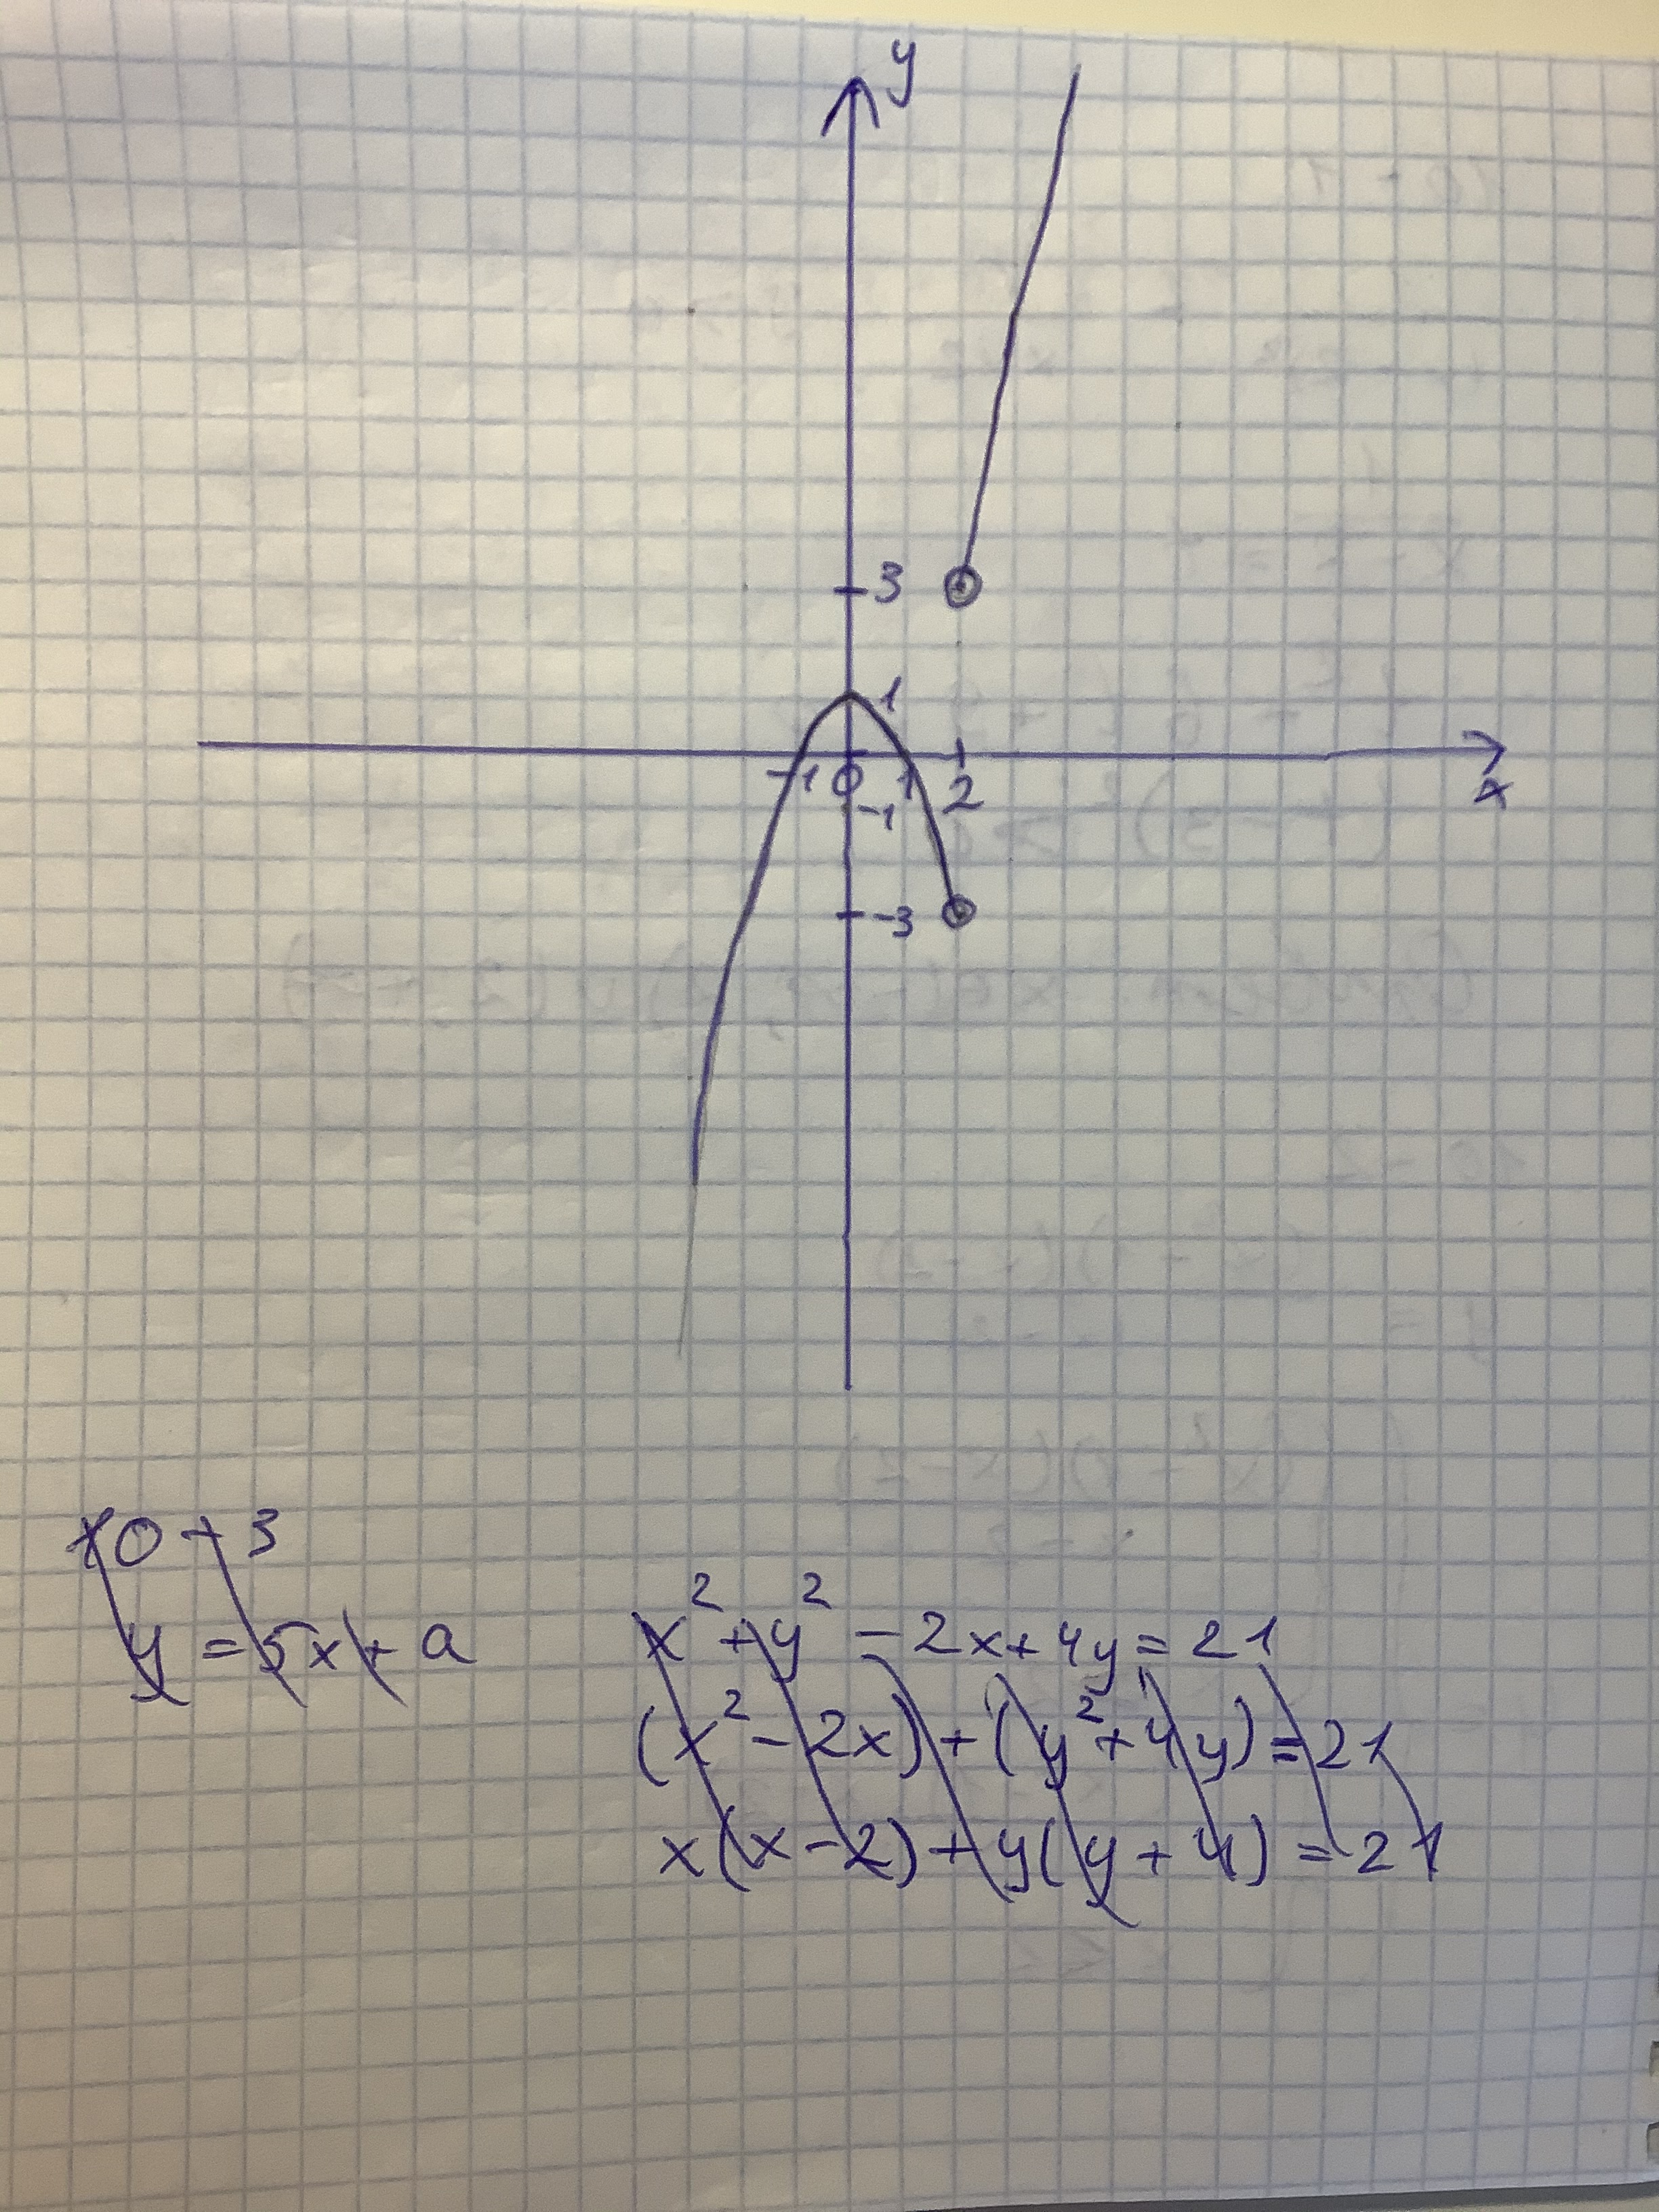 y
3
1
-1 0 1 2
x
-1
-3
10-3
y = 5x + a
x² + y² - 2x + 4y = 21
(x² - 2x) + (y² + 4y) = 21
x(x - 2) + y(y + 4) = 21